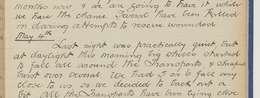 months now & we are going to have it while
we have the chance. Several have been killed
in draving attempts to rescue wounded.
May 4th
Last night was practically quiet but
at daylight this morning big shells started
to fall all around the Transports & shrapnel
burst over Arsenal. We had 5 or 6 fall very
close to us so we decided to back out a
bit. All the Transports have been lying close